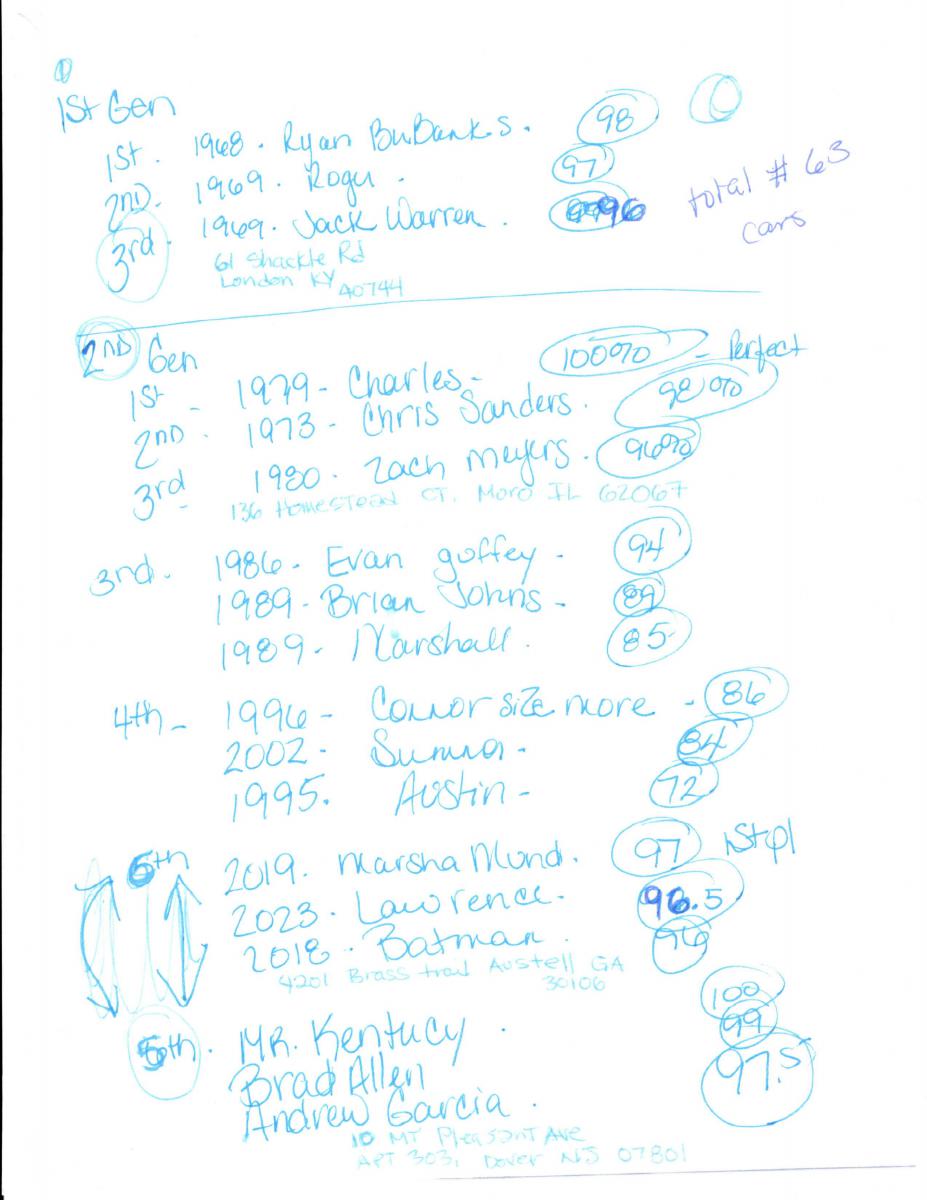 1
1st Gen
1st. 1968. Ryan BuBanks. 98
2ND. 1969. Rogu. 97
3rd. 1969. Jack Warren. 96
total # 63
cars
61 Shackle Rd
London KY 40744
2ND Gen
1st - 1979 - Charles - 100% - Perfect
2ND. 1973 - Chris Sanders. 98%
3rd - 1980. Zach Meyers. 96%
136 Homestead CT. Moro IL 62067
3nd. 1986. Evan guffey - 94
1989 - Brian Johns - 89
1989 - Marshall. 85
4th - 1996 - Connor Sizemore - 86
2002 - 84
1995. Austin - 72
6th 2019. Marsha Mund. 97 1st pl
2023. Lawrence. 96.5
2018. Batman. 96
4201 Brass trail Austell GA
30106
5th. MR. Kentucy. 100
Brad Allen 99
Andrew Garcia. 97.5
10 MT Pleasant Ave
APT 303, Dover NJ 07801